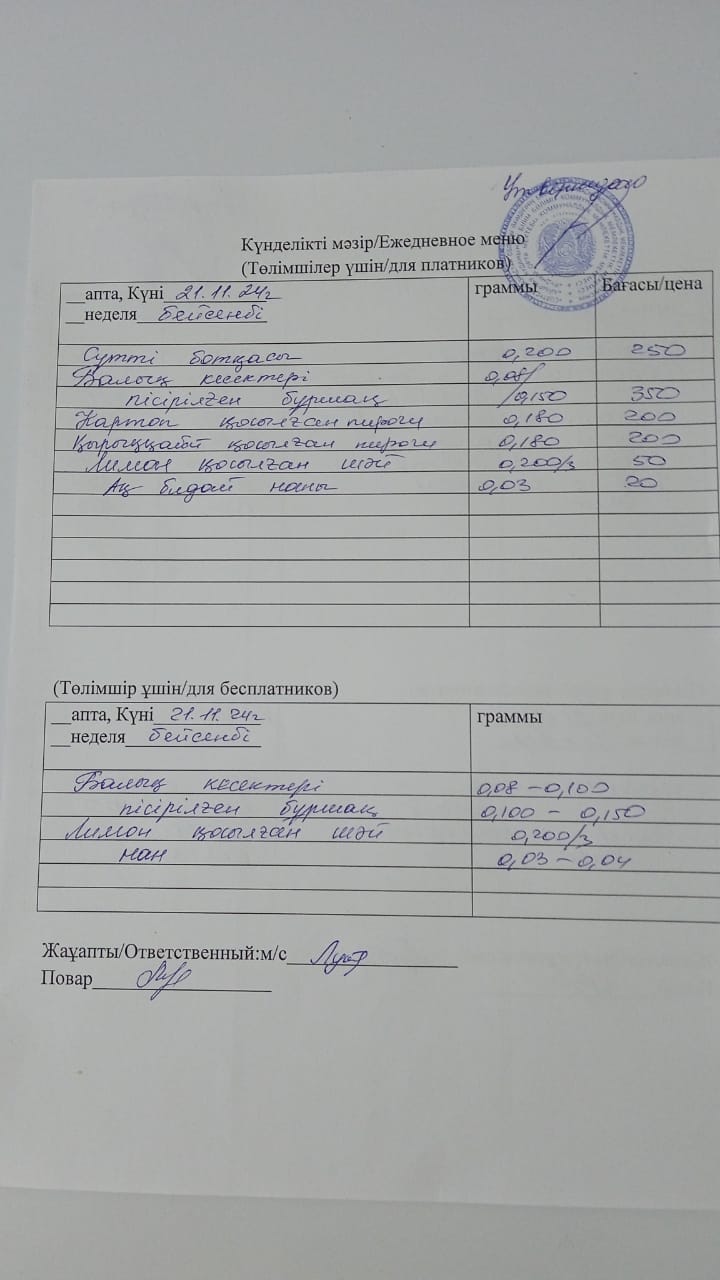 Утверждаю
Күнделікті мәзір/Ежедневное меню
(Төлімшілер үшін/для платников)
__апта, Күні 21.11.24г граммы Бағасы/цена
__неделя бейсенбі
Сүтті ботқасы 0,200 250
Балық кесектері 0,08/
пісірілген бұршақ /0,150 350
Картоп қосылған пирогы 0,180 200
Қырыққабат қосылған пирогы 0,180 200
Лимон қосылған шәй 0,200/3 50
Ақ бидай наны 0,03 20
(Төлімшір ұшін/для бесплатников)
__апта, Күні 21.11.24г граммы
__неделя бейсенбі
Балық кесектері 0,08-0,100
пісірілген бұршақ 0,100 - 0,150
Лимон қосылған шәй 0,200/3
нан 0,03-0,04
Жаұапты/Ответственный:м/с
Повар